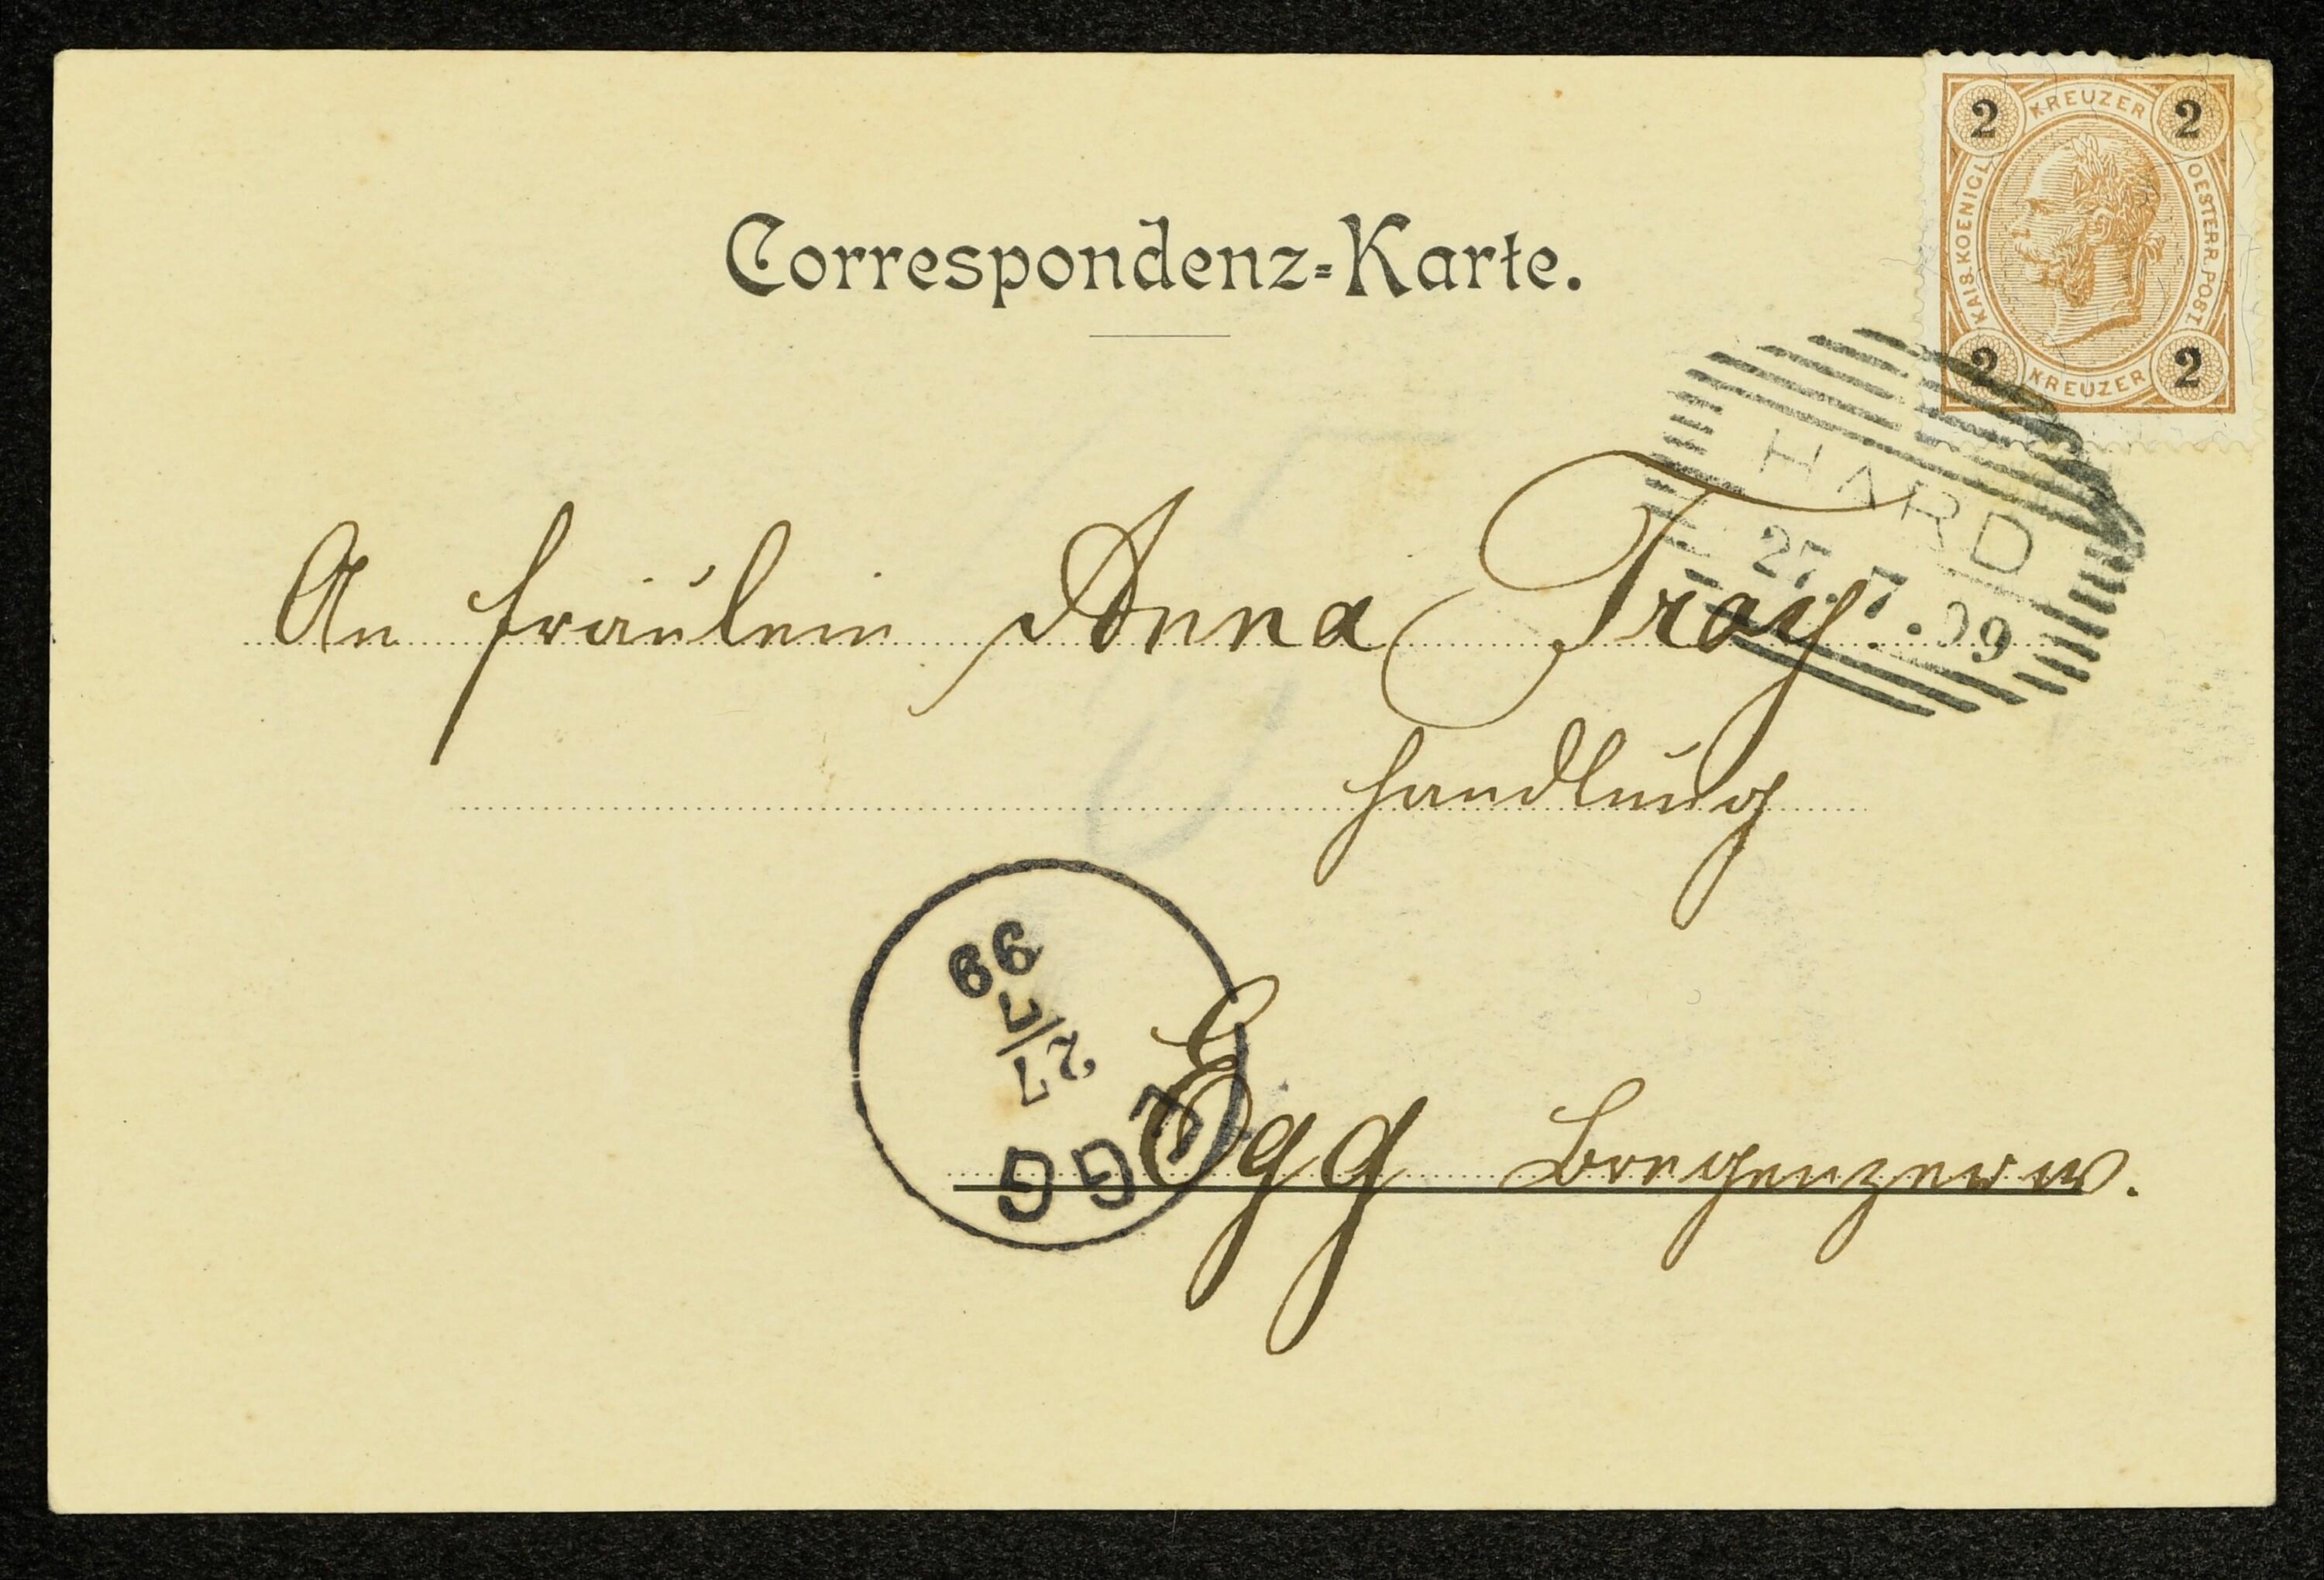 2 KREUZER 2
KAIS. KOENIGL. OESTERR. POST.
2 KREUZER 2
Correspondenz-Karte.
HARD
27.7.99
An Fräulein Anna Troy.
Handlung
EGG
27/7
99
Egg Bregenzerw.